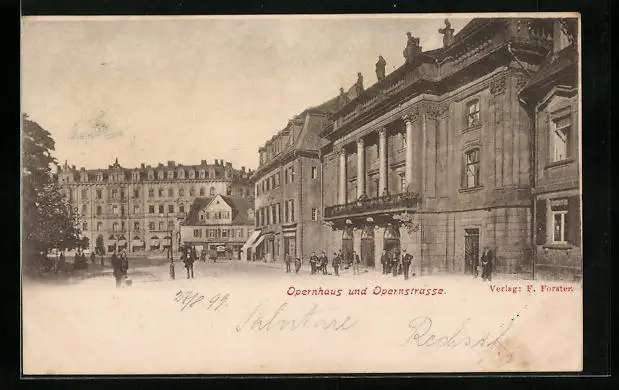 Opernhaus und Opernstrasse.
Verlag: F. Forster.
27/8. 99.